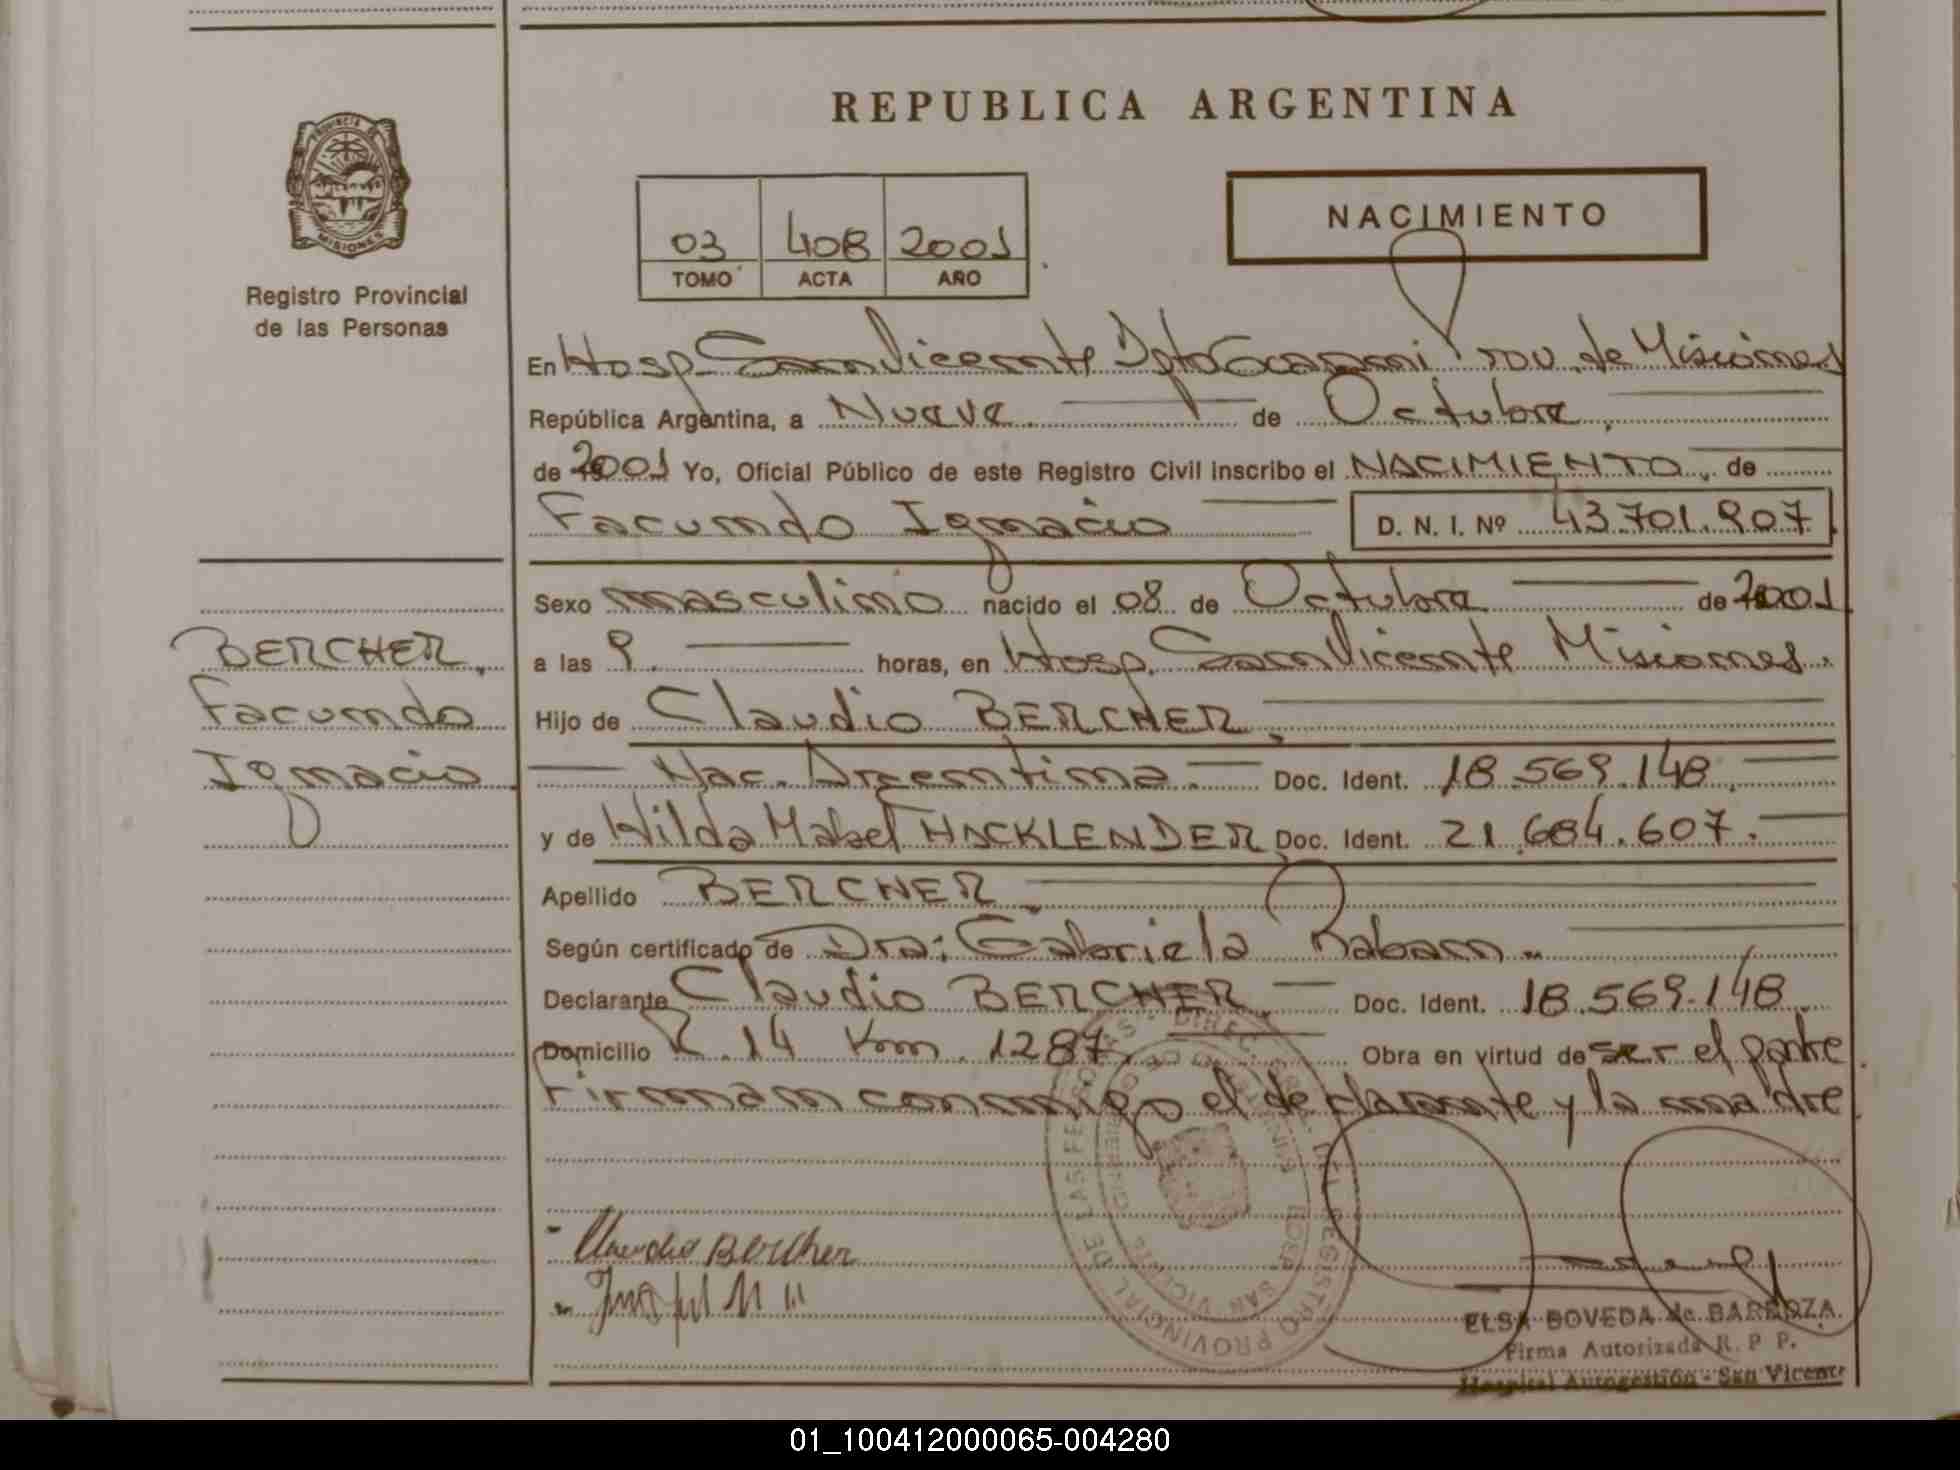 REPUBLICA ARGENTINA
PROVINCIA DE
MISIONES
Registro Provincial
de las Personas
03 408 2001
TOMO ACTA AÑO
NACIMIENTO
En Hosp. San Vicente Dpto Guarani Prov. de Misiones
República Argentina, a Nueve de Octubre
de 2001 Yo, Oficial Público de este Registro Civil inscribo el NACIMIENTO, de
Facundo Ignacio D. N. I. Nº 43.701.907
Sexo masculino nacido el 08 de Octubre de 2001
BERCHER,
Facundo
Ignacio
a las 9. horas, en Hosp. San Vicente Misiones.
Hijo de Claudio BERCHER,
Nac. Argentina. Doc. Ident. 18.569.148.
y de Hilda Mabel HACKLENDER, Doc. Ident. 21.684.607.
Apellido BERCHER.
Según certificado de Dra: Gabriela Raban.
Declarante Claudio BERCHER, Doc. Ident. 18.569.148
Domicilio R. 14 Km. 1287. Obra en virtud de ser el padre.
Firman conmigo el declarante y la madre.
DIREC. GRAL. DEL REGISTRO PROVINCIAL DE LAS PERSONAS
MINISTERIO DE GOBIERNO
HOSP. SAN VICENTE
Claudio Bercher
ELSA BOVEDA de BARBOZA
Firma Autorizada R. P P.
Hospital Autogestión - San Vicente
01_100412000065-004280